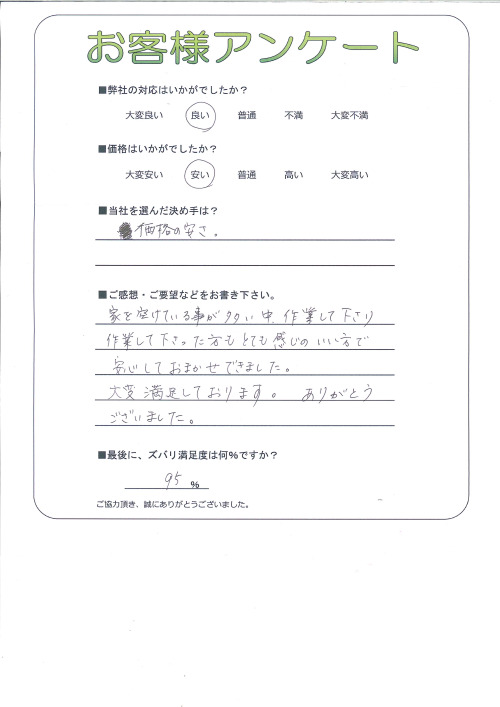 お客様アンケート
■弊社の対応はいかがでしたか？
大変良い 良い 普通 不満 大変不満
■価格はいかがでしたか？
大変安い 安い 普通 高い 大変高い
■当社を選んだ決め手は？
価格の安さ。
■ご感想・ご要望などをお書き下さい。
家を空けている事が多い中、作業して下さり
作業して下さった方もとても感じのいい方で
安心しておまかせできました。
大変満足しております。 ありがとう
ございました。
■最後に、ズバリ満足度は何％ですか？
95 ％
ご協力頂き、誠にありがとうございました。